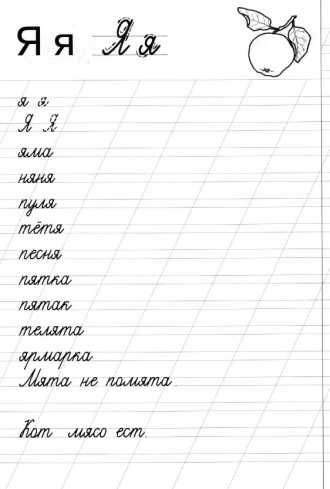 Я я Я я
я я
Я Я
яма
няня
пуля
тётя
песня
пятка
пятак
телята
ярмарка
Мята не помята
Кот мясо ест.